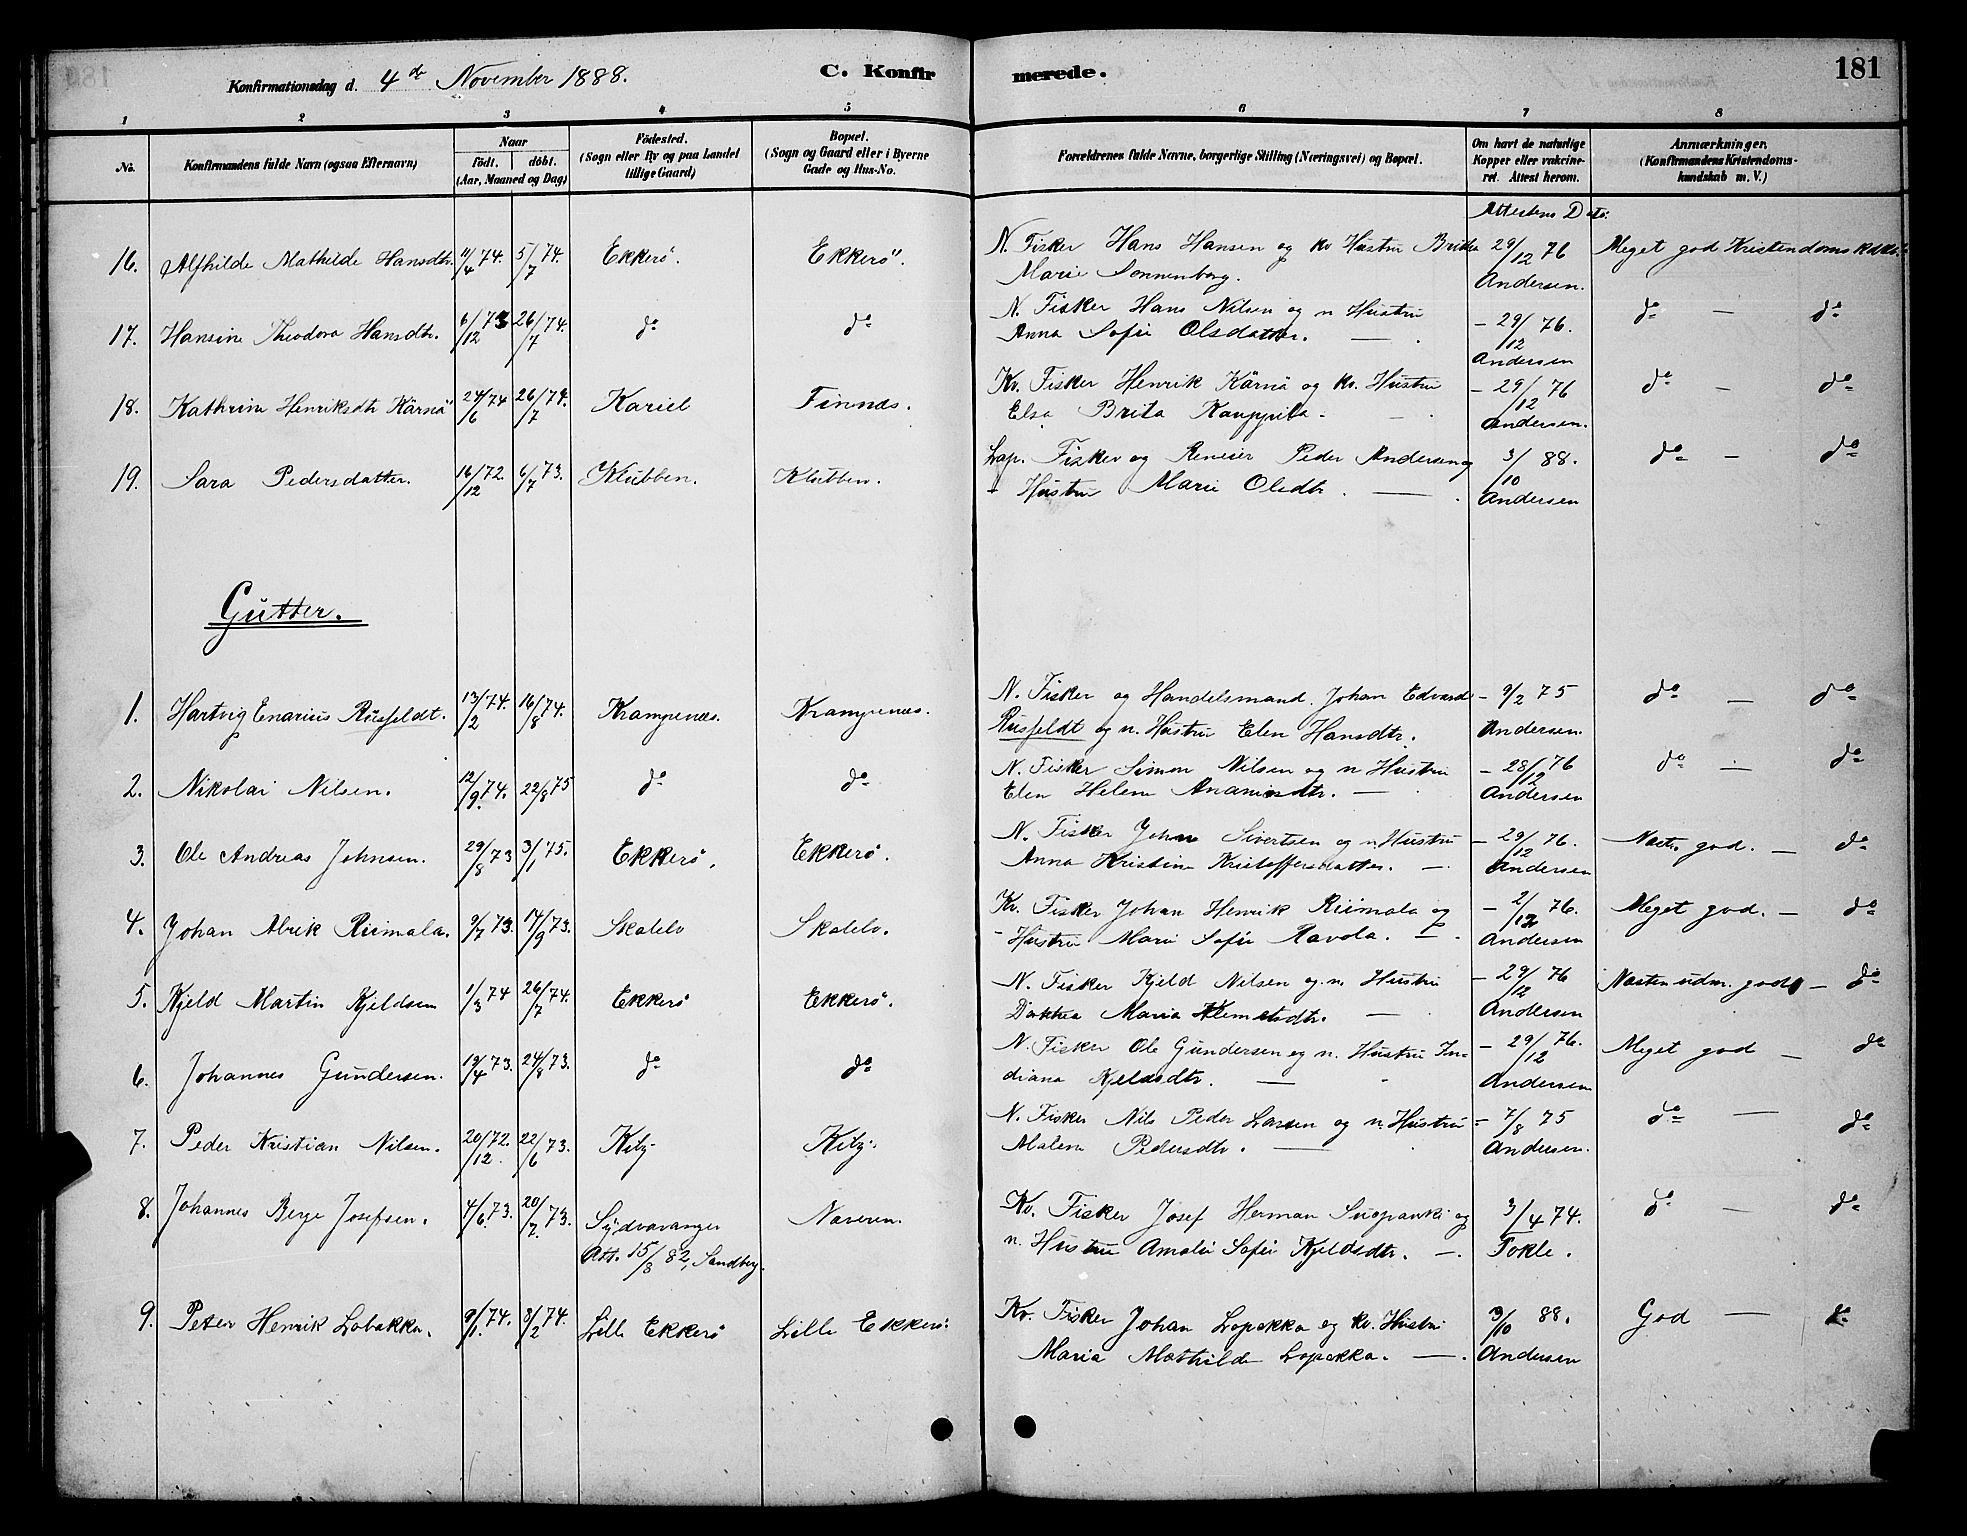 181
Konfirmationsdag d. 4de November 1888. C. Konfir merede.
1 2 3 4 5 6 7 8
No. Konfirmandens fulde Navn (ogsaa Efternavn) Naar født. døbt. (Aar, Maaned og Dag) Födested. (Sogn eller By og paa Landet tillige Gaard) Bopæl. (Sogn og Gaard eller i Byerne Gade og Hus-No. Forældrenes fulde Navne, borgerlige Stilling (Næringsvei) og Bopæl. Om havt de naturlige Kopper eller vakcineret. Attest herom. Anmærkninger. (Konfirmandens Kristendomskundskab m. V.)
Attestens Dato:
16. Alfhilde Mathilde Hansdtr. 11/4 74. 5/7 74. Ekkerö. Ekkerö. N. Fisker Hans Hansen og kv Hustru Brita 29/12 76 Meget god Kristendoms
Marie Sonnenborg. Andersen.
17. Hansine Theodora Hansdtr. 6/12 73 26/7 74. do do N. Fisker Hans Nilsen og n Hustru - 29/12 76. do — do
Anna Sofie Olsdatter. — Andersen
18. Kathrine Henriksdtr Kärnä 24/6 74 26/7 74. Kariel Finnæs. Kv. Fisker Henrik Kärnä og kv. Hustru - 29/12 76 do — do
Elsa Brita Kauppila - Andersen.
19. Sara Pedersdatter. 16/12 72. 6/7 73. Klubben. Klubben. Lap. Fisker og Reneier Peder Andersen og 3/10 88. do — do
- Hustru Marie Olsdtr. — Andersen
Gutter.
1. Hartvig Enarius Rusfeldt. 13/2 74. 16/8 74. Krampenæs. Krampenæs. N. Fisker og Handelsmand. Johan Edvard - 9/2 75 do — do
Rusfeldt og n. Hustru Elen Hansdtr. Andersen
2. Nikolai Nilsen. 12/9 74. 22/8 75 do do N. Fisker Simon Nilsen og n Hustru - 28/12 76 do — do
Elen Helene Ananiasdtr. — Andersen
3. Ole Andreas Johnsen. 29/8 73 3/1 75. Ekkerö. Ekkerö. N. Fisker John Sivertsen og n Hustru - 29/12 76. Næsten god. — do
Anna Kristine Kristoffersdatter. — Andersen
4. Johan Abrik Riimala. 9/7 73. 14/9 73. Skalelv Skalelv. Kv. Fisker Johan Henrik Riimala og - 2/12 76. Meget god. — do
- Hustru Marie Sofie Ravola. — Andersen
5. Kjeld Martin Kjeldsen 1/3 74 26/7 74. Ekkerö Ekkerö. N. Fisker Kjeld Nilsen og n. Hustru - 29/12 76 Næsten udm. god — do
Maria Klemetsdtr. — Andersen
6. Johannes Gundersen. 19/4 73. 24/8 73. do do N. Fisker Ole Gundersen og n. Hustru In- - 29/12 76. Meget god — do
diana Kjeldsdtr. — Andersen
7. Peder Kristian Nilsen. 20/12 72. 22/6 73. Kiby Kiby. N. Fisker Nils Peder Larsen og n. Hustru - 7/8 75 do — do
Malene Pedersdtr. — Andersen.
8. Johannes Berge Josefsen. 4/6 73. 20/7 73. Sydvaranger Naveren. Kv. Fisker Josef Herman Suopanki og 3/4 74. do — do
Att. 15/8 82, Sandberg. n. Hustru Amalie Sofie Kjeldsdtr. — Tokle.
9. Peter Henrik Lobakka. 9/1 74. 8/2 74. Lille Ekkerö Lille Ekkerö. Kv. Fisker Johan Lopakka og kv. Hustru 3/10 88. God —
Maria Mathilde Lopakka. — Andersen